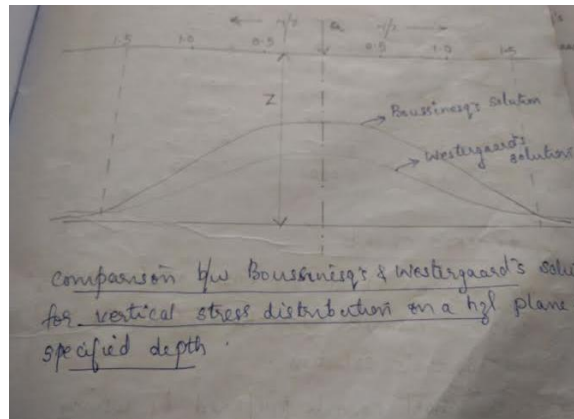 ← r/z Q r/z →
1.5 1.0 0.5 0.5 1.0 1.5
Z
Boussinesq's solution
Westergaard's
solution
comparison b/w Boussinesq's & Westergaard's solu
for vertical stress distribution on a hzl plane
specified depth.